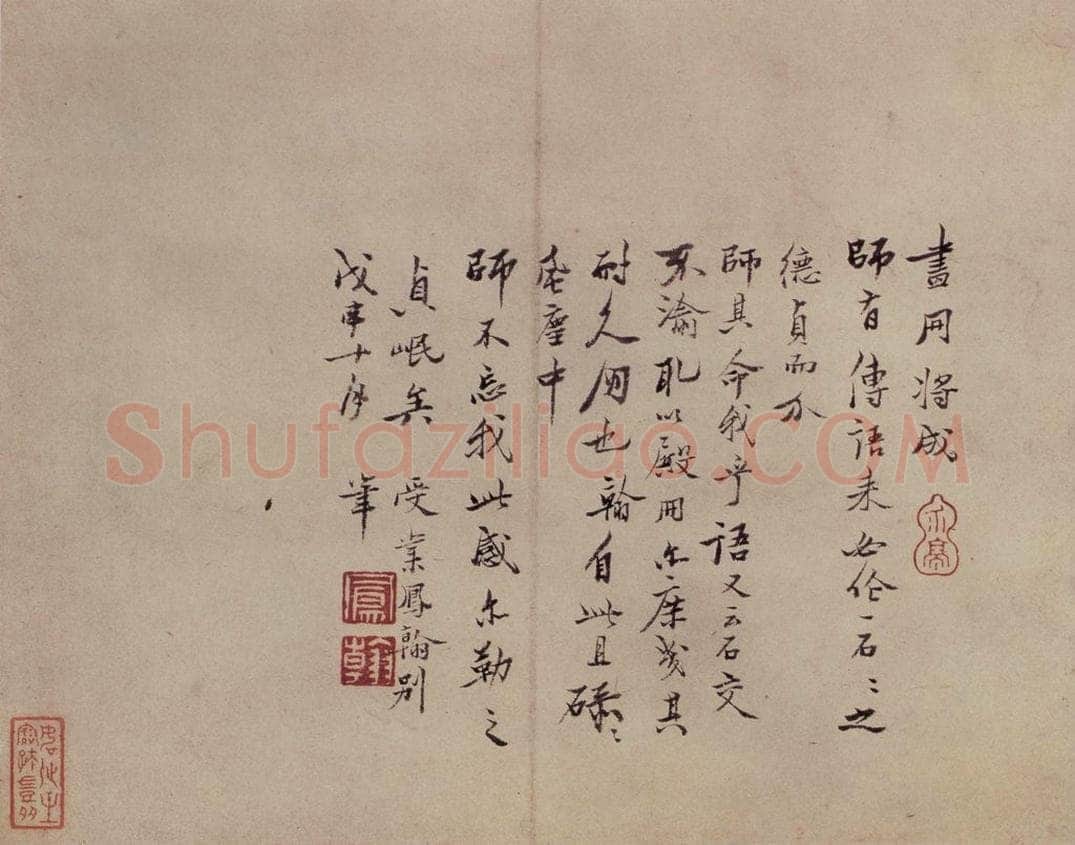 畫冊将成
師有傳語来必作一石〻之
德貞而介
師其命我乎語又云石交
不渝取以殿冊尔庶幾其
耐久朋也翰自此且碌〻
風塵中
師不忘我此感尔勒之
貞岷矣 受業鳳翰別
戊申十月 筆
鳳
翰
Shufaziliao.COM